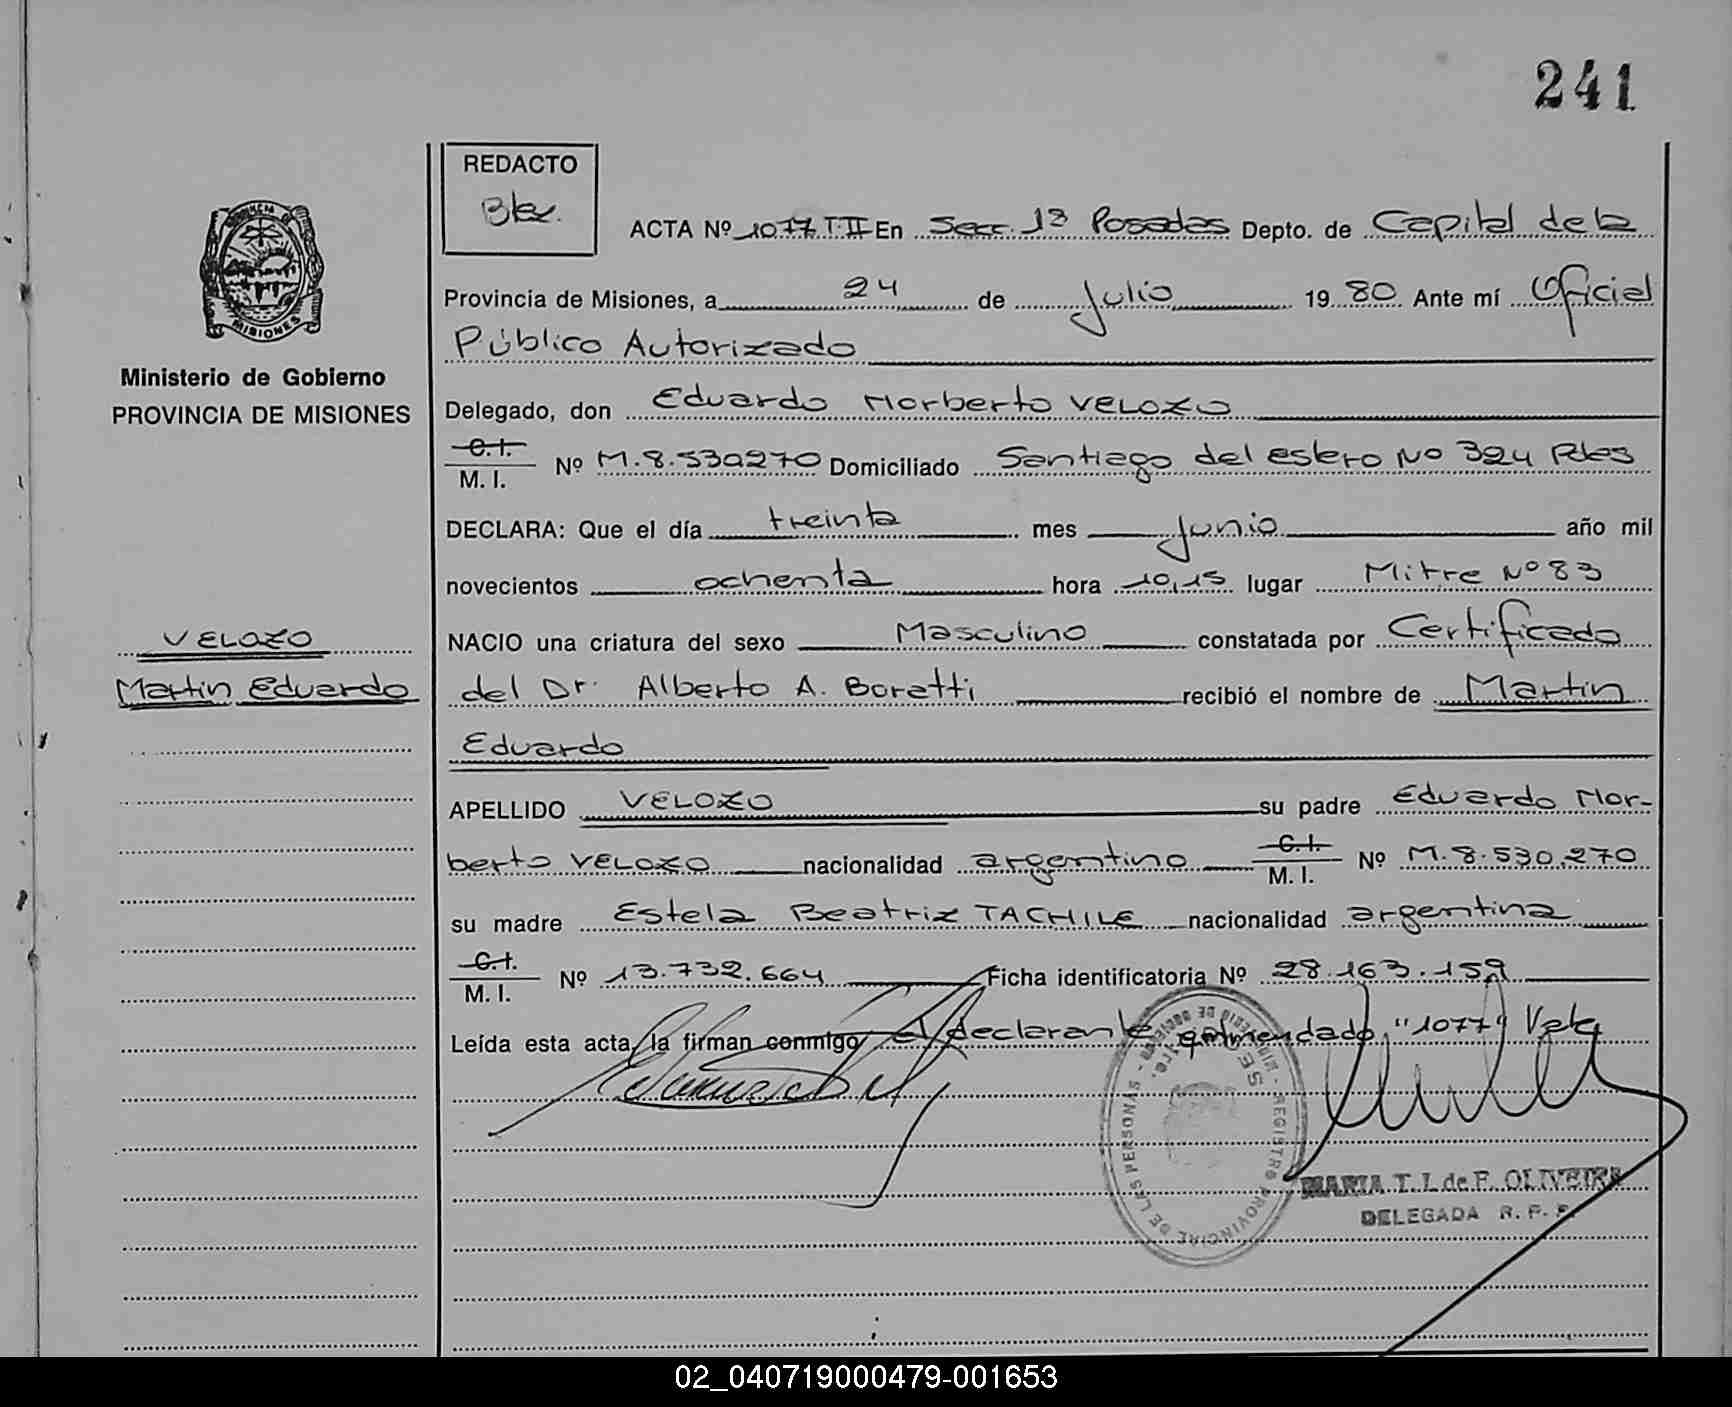 241
REDACTO
ACTA Nº 1077 T.II En Secc. 1ª Posadas Depto. de Capital de la
Provincia de Misiones, a 24 de Julio 1980 Ante mí Oficial
Público Autorizado
Ministerio de Gobierno
PROVINCIA DE MISIONES
Delegado, don Eduardo Norberto VELOZO
C.I.
M. I. Nº M.8.530270 Domiciliado Santiago del estero Nº 324 Pdas
DECLARA: Que el día treinta mes junio año mil
novecientos ochenta hora 10,15 lugar Mitre Nº 83
VELOZO
NACIO una criatura del sexo Masculino constatada por Certificado
Martin Eduardo
del Dr. Alberto A. Boratti recibió el nombre de Martin
Eduardo
APELLIDO VELOZO su padre Eduardo Nor-
berto VELOZO nacionalidad argentino C.I. M. I. Nº M.8.530.270
su madre Estela Beatriz TACHILE nacionalidad argentina
C.I.
M. I. Nº 13.732.664 Ficha identificatoria Nº 28.163.159
Leída esta acta, la firman conmigo el declarante enmendado "1077" Vale
REGISTRO PROVINCIAL DE LAS PERSONAS - MINISTERIO DE GOBIERNO
MARIA T. I. de F. OLIVEIRA
DELEGADA R. P. P.
02_040719000479-001653